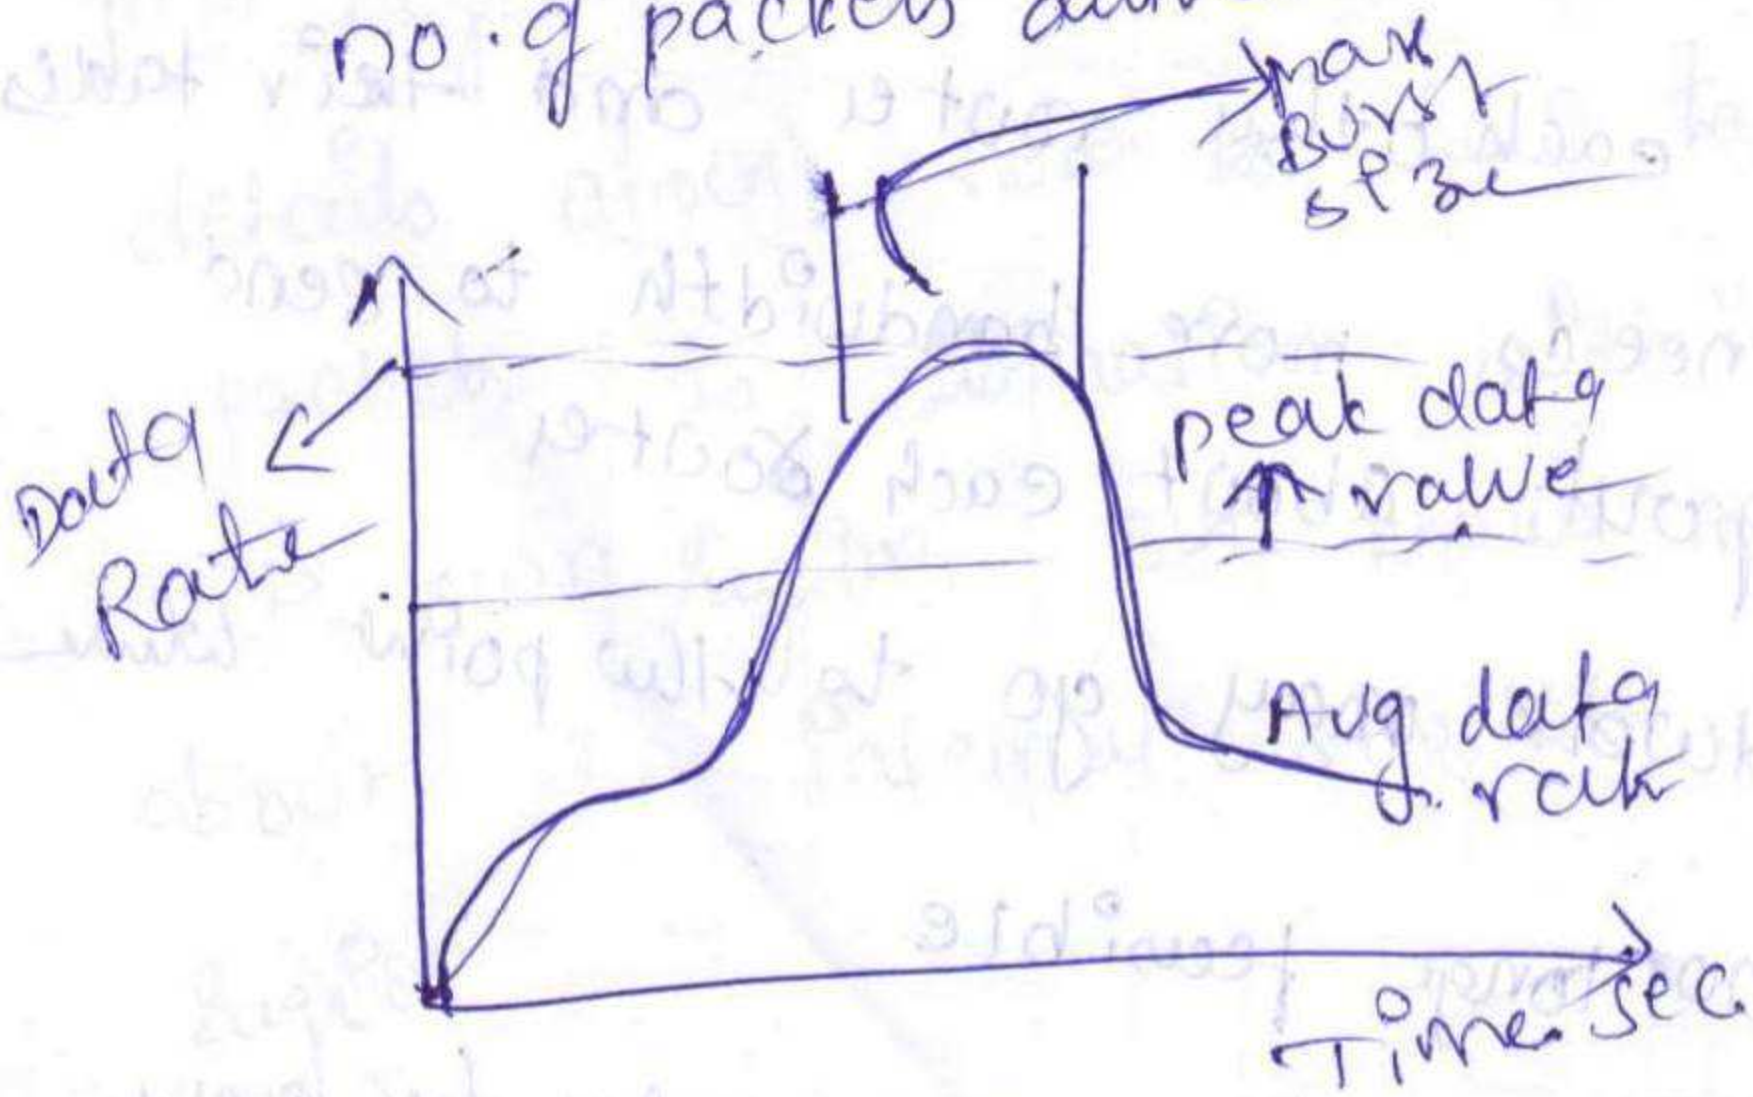 no. of packets
max
Burst
size
Data
Rate
peak data
value
Avg data
rate
Time sec.